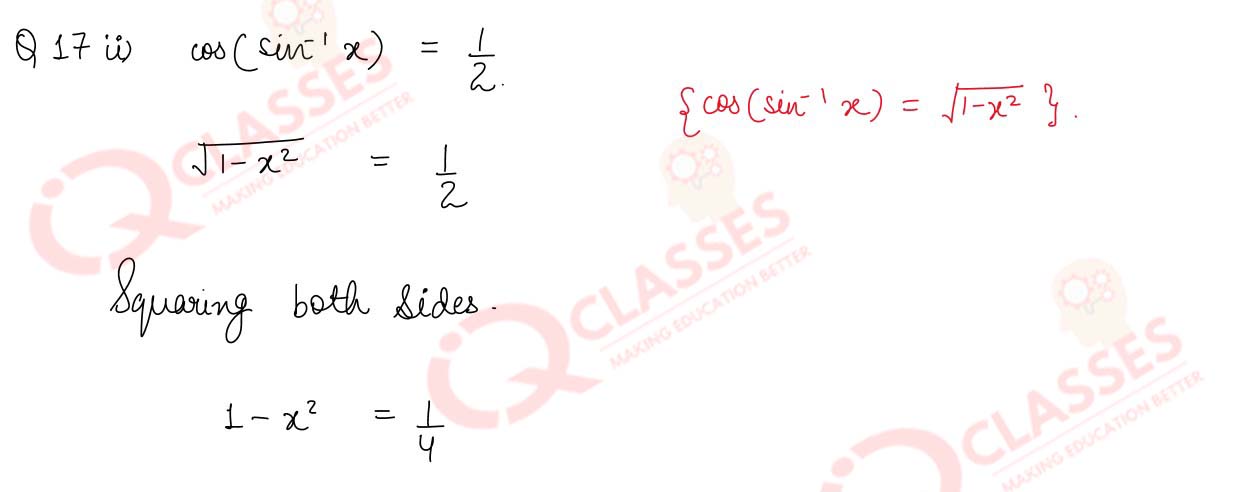 Q 17 ii) cos(sin⁻¹ x) = 1/2.
{cos(sin⁻¹ x) = √(1-x²)}.
√(1-x²) = 1/2
Squaring both sides.
1 - x² = 1/4
iQ CLASSES
MAKING EDUCATION BETTER
iQ CLASSES
MAKING EDUCATION BETTER
iQ CLASSES
MAKING EDUCATION BETTER